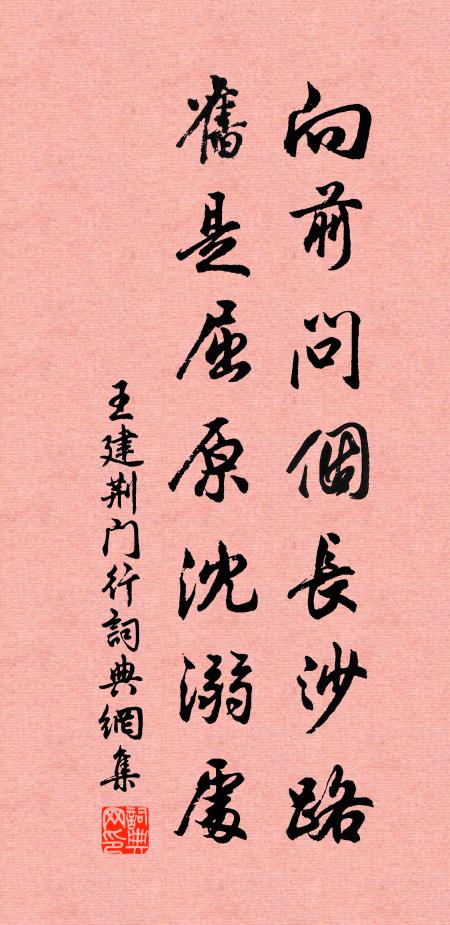 向前問個長沙路
舊是屈原沈溺處
王建荆門行詞典網集
詞典网印